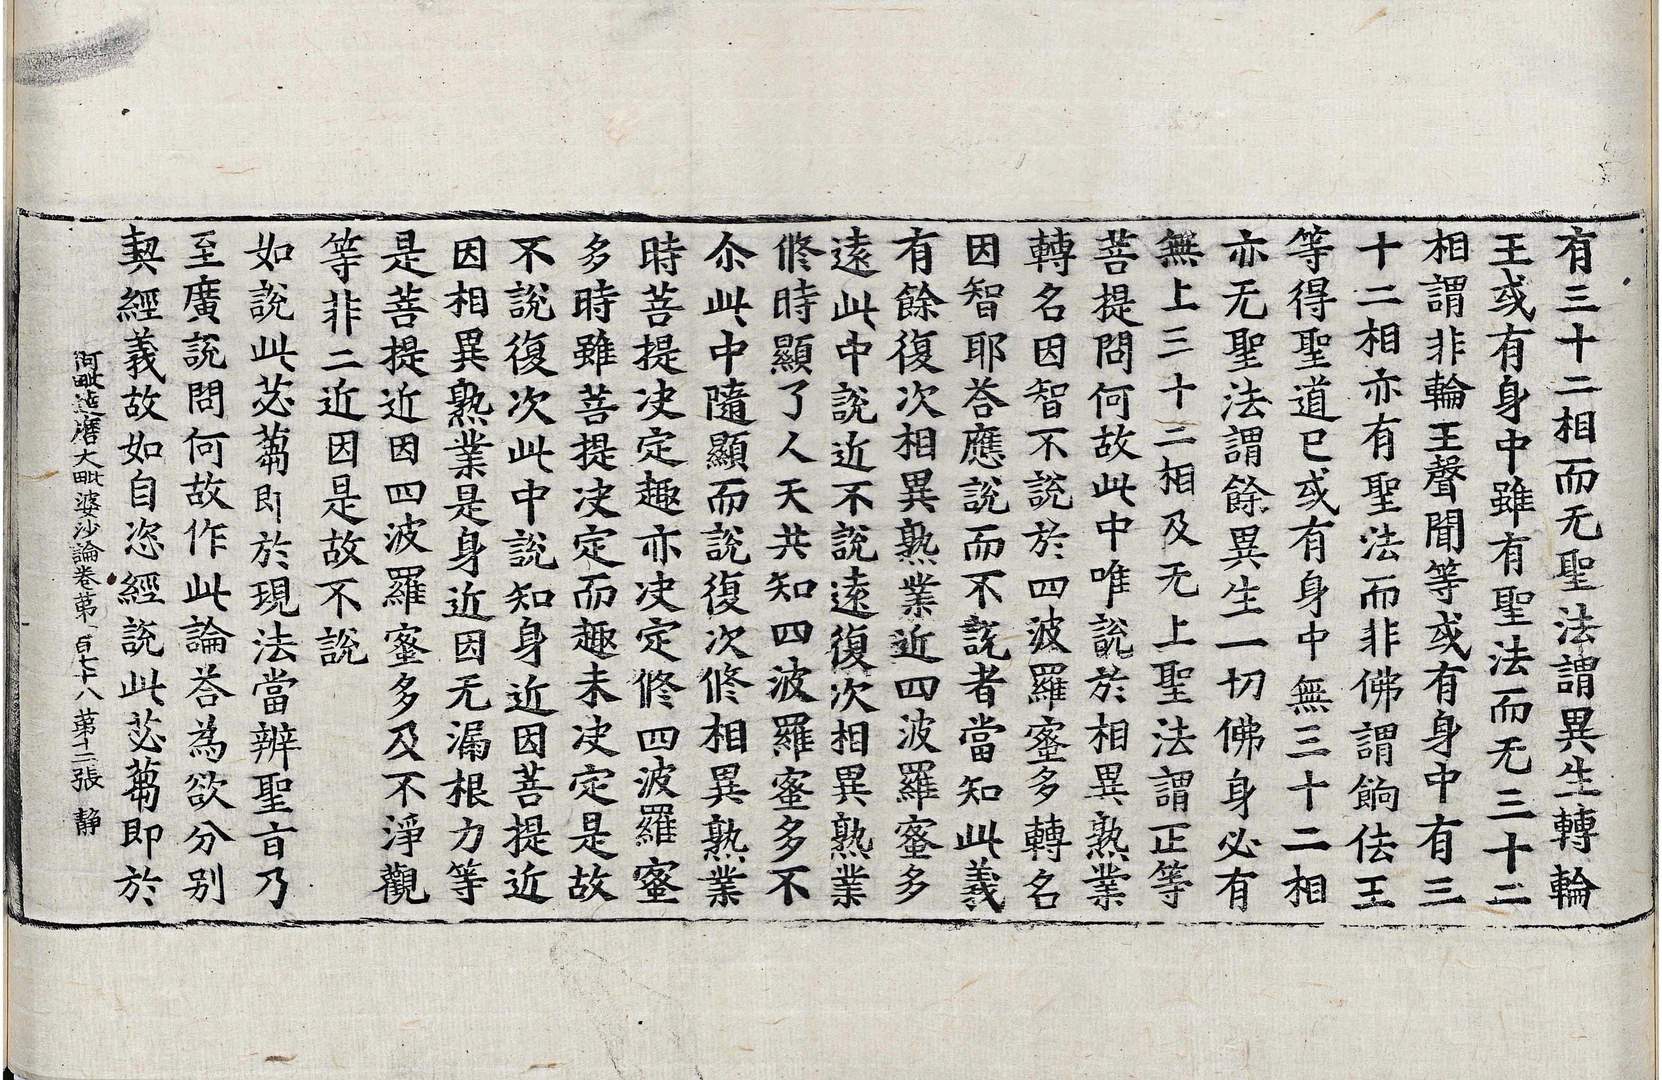 有三十二相而无聖法謂異生轉輪
王或有身中雖有聖法而无三十二
相謂非輪王聲聞等或有身中有三
十二相亦有聖法而非佛謂餉佉王
等得聖道已或有身中無三十二相
亦无聖法謂餘異生一切佛身必有
無上三十二相及无上聖法謂正等
菩提問何故此中唯說於相異熟業
轉名因智不說於四波羅蜜多轉名
因智耶荅應說而不說者當知此義
有餘復次相異熟業近四波羅蜜多
遠此中說近不說遠復次相異熟業
修時顯了人天共知四波羅蜜多不
尒此中隨顯而說復次修相異熟業
時菩提決定趣亦決定修四波羅蜜
多時雖菩提決定而趣未決定是故
不說復次此中說知身近因菩提近
因相異熟業是身近因无漏根力等
是菩提近因四波羅蜜多及不淨觀
等非二近因是故不說
如說此苾蒭即於現法當辨聖旨乃
至廣說問何故作此論荅為欲分別
契經義故如自恣經說此苾蒭即於
阿毗達磨大毗婆沙論卷苐一百七十八 苐十二張 靜